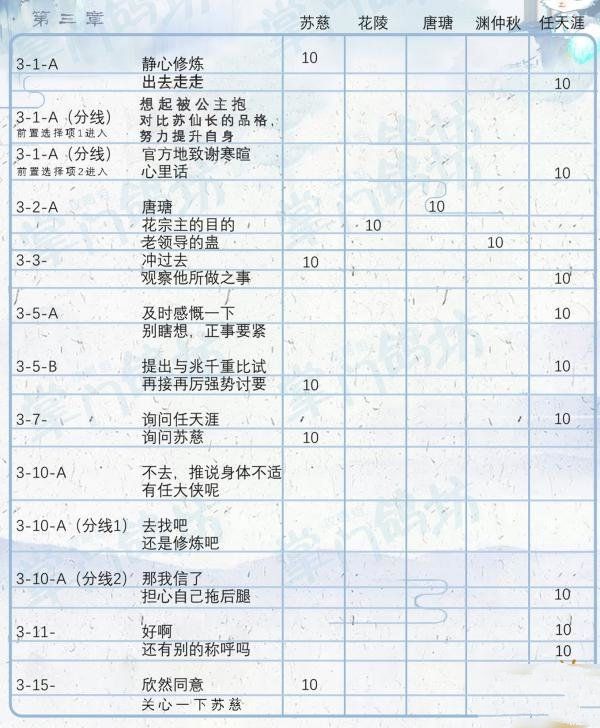 第三章 苏慈 花陵 唐瑭 渊仲秋 任天涯
3-1-A 静心修炼 10
出去走走 10
想起被公主抱
3-1-A（分线） 对比苏仙长的品格，
前置选择项1进入 努力提升自身
3-1-A（分线） 官方地致谢寒暄
前置选择项2进入 心里话 10
3-2-A 唐瑭 10
花宗主的目的 10
老领导的蛊 10
3-3- 冲过去 10
观察他所做之事 10
3-5-A 及时感慨一下 10
别瞎想，正事要紧
3-5-B 提出与兆千重比试 10
再接再厉强势讨要 10
3-7- 询问任天涯 10
询问苏慈 10
3-10-A 不去，推说身体不适
有任大侠呢
3-10-A（分线1） 去找吧
还是修炼吧
3-10-A（分线2） 那我信了
担心自己拖后腿 10
3-11- 好啊 10
还有别的称呼吗 10
3-15- 欣然同意 10
关心一下苏慈
掌门鸽坊
掌门鸽坊
掌门鸽坊
掌门鸽坊
掌门鸽坊
掌门鸽坊